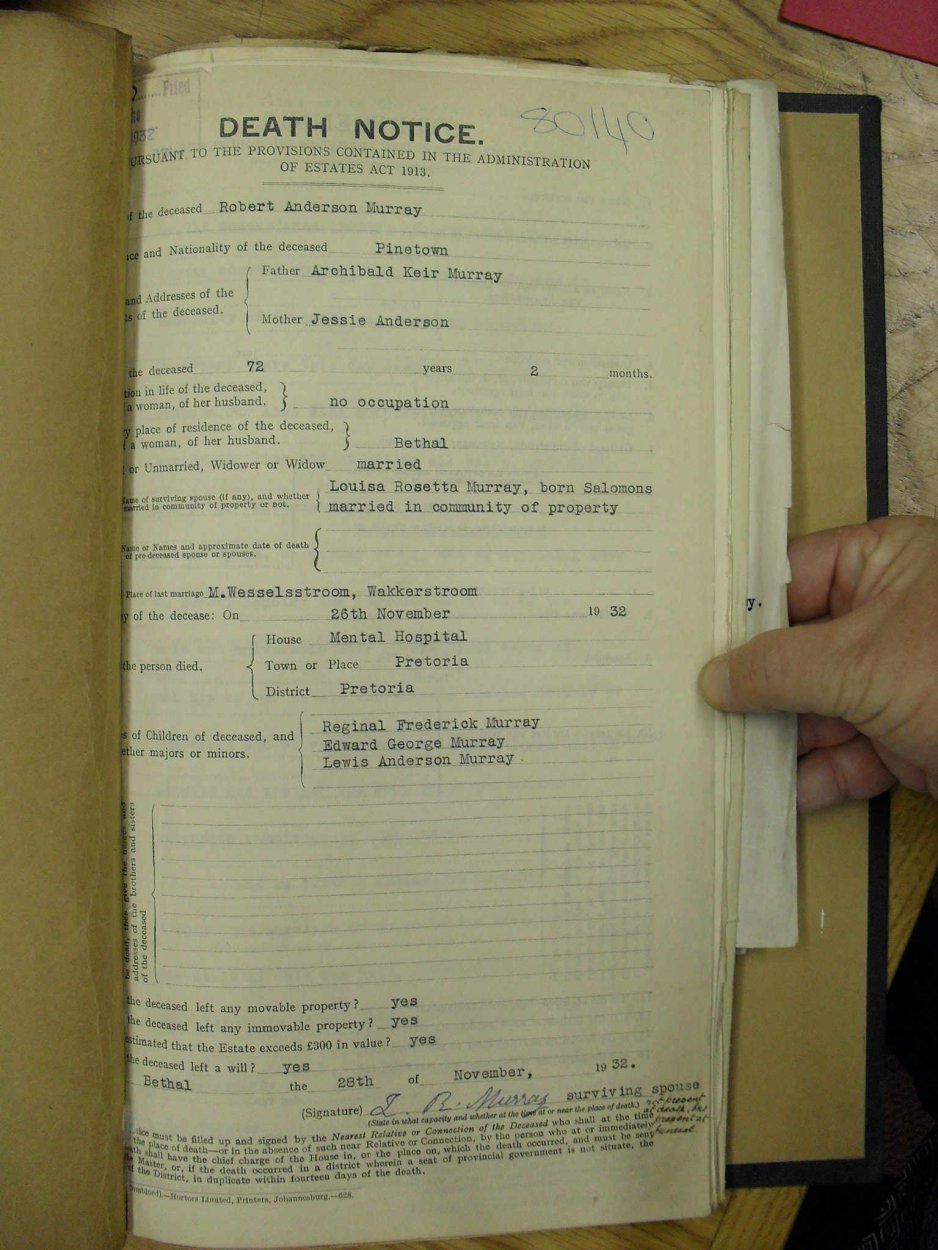 Filed
1932
80140
DEATH NOTICE.
URSUANT TO THE PROVISIONS CONTAINED IN THE ADMINISTRATION
OF ESTATES ACT 1913.
f the deceased Robert Anderson Murray
ce and Nationality of the deceased Pinetown
Father Archibald Keir Murray
and Addresses of the
s of the deceased.
Mother Jessie Anderson
the deceased 72 years 2 months.
tion in life of the deceased,
a woman, of her husband. no occupation
y place of residence of the deceased,
a woman, of her husband. Bethal
or Unmarried, Widower or Widow married
Name of surviving spouse (if any), and whether Louisa Rosetta Murray, born Salomons
married in community of property or not. married in community of property
Name or Names and approximate date of death
of pre-deceased spouse or spouses.
Place of last marriage M.Wesselsstroom, Wakkerstroom
y of the decease: On 26th November 19 32
House Mental Hospital
the person died. Town or Place Pretoria
District Pretoria
Reginal Frederick Murray
s of Children of deceased, and Edward George Murray
ether majors or minors. Lewis Anderson Murray
addresses of the brothers and sisters
of the deceased
the deceased left any movable property? yes
the deceased left any immovable property? yes
stimated that the Estate exceeds £300 in value? yes
he deceased left a will? yes
Bethal the 28th of November, 19 32.
(Signature) L. R. Murray surviving spouse
(State in what capacity and whether at the time at or near the place of death.) not present
at death, but
present at
funeral
tice must be filled up and signed by the Nearest Relative or Connection of the Deceased who shall at the time
the place of death—or in the absence of such near Relative or Connection, by the person who at or immediately
ath shall have the chief charge of the House in, or the place on, which the death occurred, and must be sent
e Master, or, if the death occurred in a district wherein a seat of provincial government is not situate, the
of the District, in duplicate within fourteen days of the death.
ombined).—Hortors Limited, Printers, Johannesburg.—628.
y.